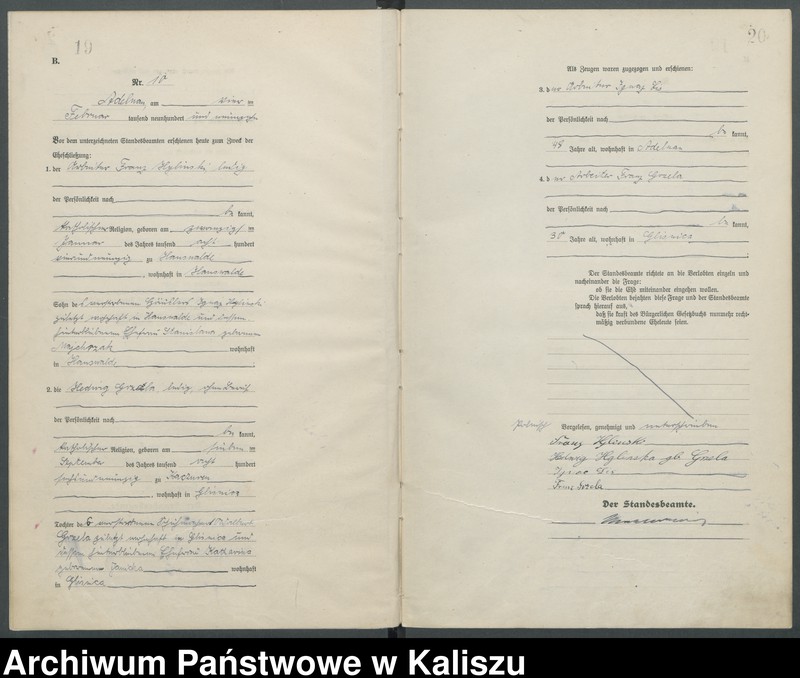 19
B.
Nr. 10
Adelnau am vier
Februar tausend neunhundert und neunzehn
Vor dem unterzeichneten Standesbeamten erschienen heute zum Zweck der
Eheschließung:
1. der Arbeiter Franz Hglinski ledig
der Persönlichkeit nach
be kannt,
katholischer Religion, geboren am zwanzigsten
Januar des Jahres tausend acht hundert
vierundneunzig zu Hanswalde
, wohnhaft in Hanswalde
Sohn des verstorbenen Häuslers Ignaz
zuletzt wohnhaft in Hanswalde und dessen
hinterbliebenen Ehefrau Stanislawa geborenen
Majchrzak wohnhaft
in Hanswalde
2. die Hedwig Grzela ledig, ohne Beruf
der Persönlichkeit nach
be kannt,
katholischer Religion, geboren am sieben
September des Jahres tausend acht hundert
sechsundneunzig zu
, wohnhaft in Glisnica
Tochter des verstorbenen
Grzela zuletzt wohnhaft in Glisnica und
dessen hinterbliebenen Ehefrau
geborenen wohnhaft
in Glisnica
20
Als Zeugen waren zugezogen und erschienen:
3. der Arbeiter Ignaz
der Persönlichkeit nach
be kannt,
48 Jahre alt, wohnhaft in Adelnau
4. der Arbeiter Franz Grzela
der Persönlichkeit nach
be kannt,
30 Jahre alt, wohnhaft in Glisnica
Der Standesbeamte richtete an die Verlobten einzeln und
nacheinander die Frage:
ob sie die Ehe miteinander eingehen wollen.
Die Verlobten bejahten diese Frage und der Standesbeamte
sprach hierauf aus,
daß sie kraft des Bürgerlichen Gesetzbuchs nunmehr recht-
mäßig verbundene Eheleute seien.
Vorgelesen, genehmigt und unterschrieben
Franz Hglinski
Hedwig Hglinska gb. Grzela
Franz Grzela
Der Standesbeamte.
Archiwum Państwowe w Kaliszu